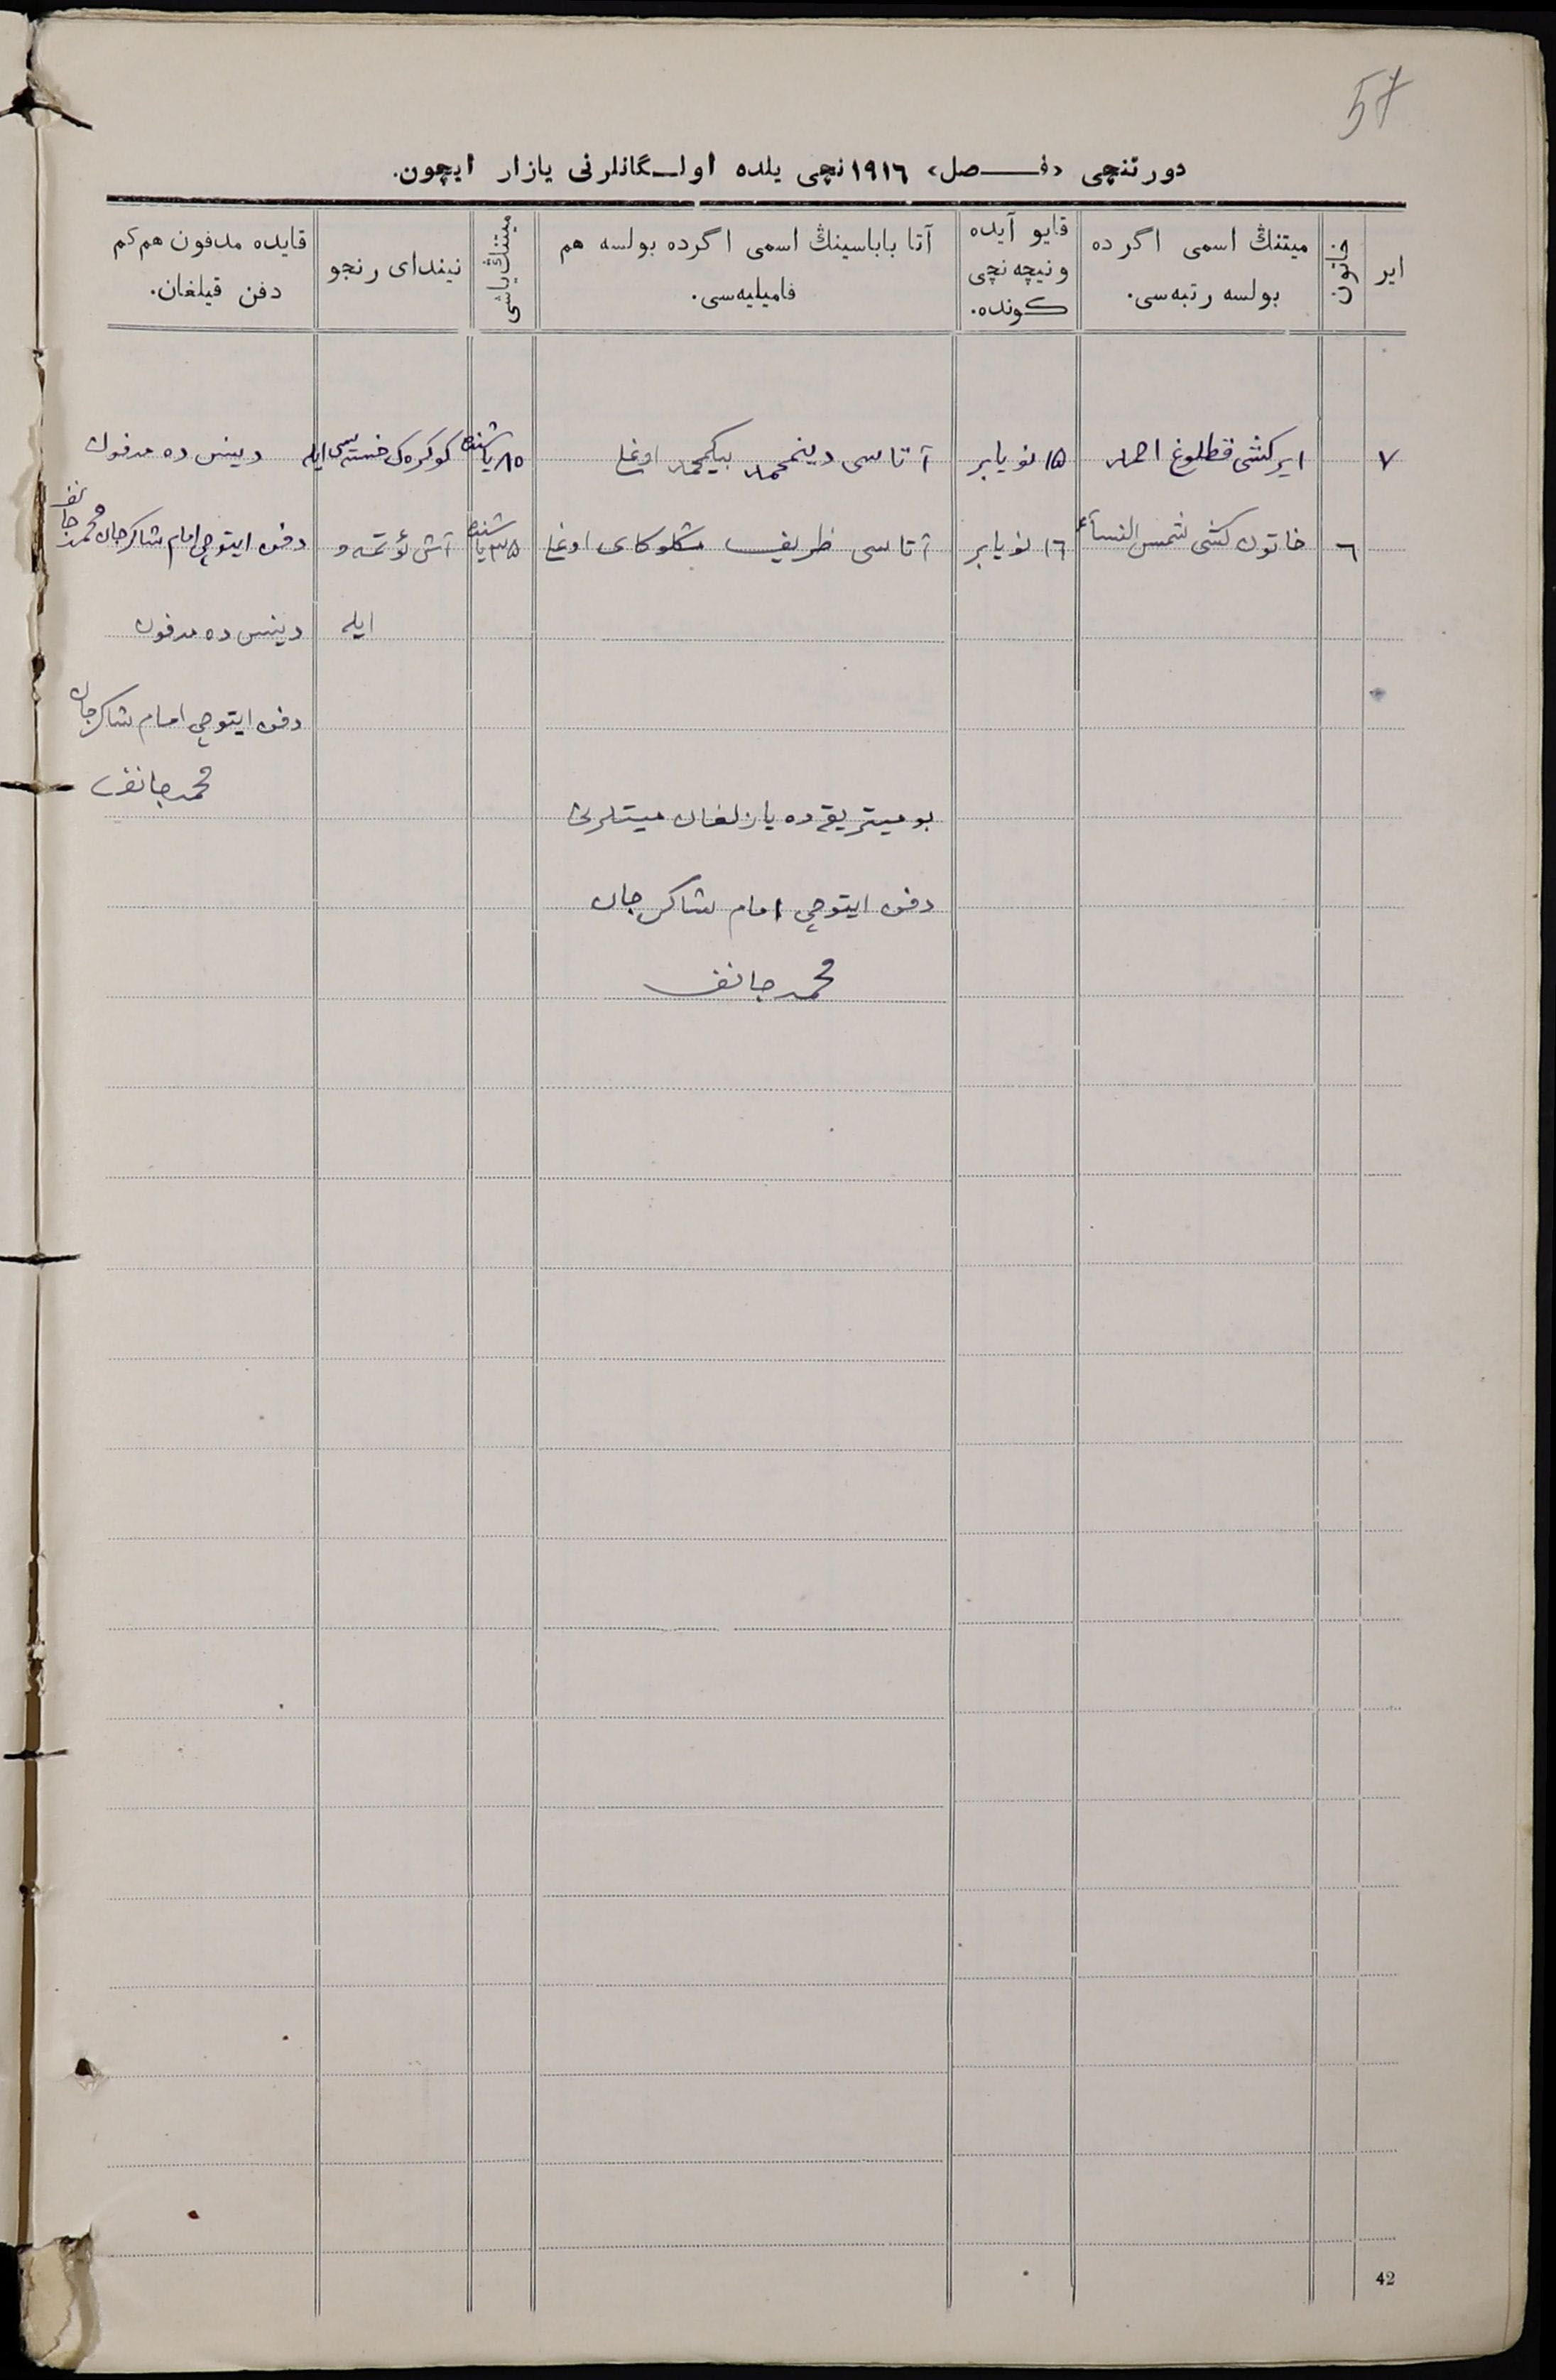 57
دورتنچی «فـــصل» ۱۹۱٦ نچی یلده اولـگانلرنی یازار ایچون.
ایر
خاتون
میتنڭ اسمی اگرده
بولسه رتبه‌سی.
قایو آیده
ونیچه نچی
کونده.
آتا باباسینڭ اسمی اگرده بولسه هم
فامیلیه‌سی.
میتننڭ یاشی
نیندای رنجو
قایده مدفون هم کم
دفن قیلغان.
۷ ایر کشی قطلوغ احمد ۱۵ نویابر آتاسی دینمحمد بیکمحمد اوغلی ۸۵ یاشنده کوکره‌ک خسته‌سی ایله دینس ده مدفون
دفن ایتوچی امام شاکرجان محمدجانف
٦ خاتون کشی شمس النسآء ۱٦ نویابر آتاسی ظریف اوغلی ۳۵ یاشنده آش
ایله دینس ده مدفون
دفن ایتوچی امام شاکرجان
محمدجانف
بو میتریقه‌ده یازلغان میتلرنی
دفن ایتوچی امام شاکرجان
محمدجانف
42